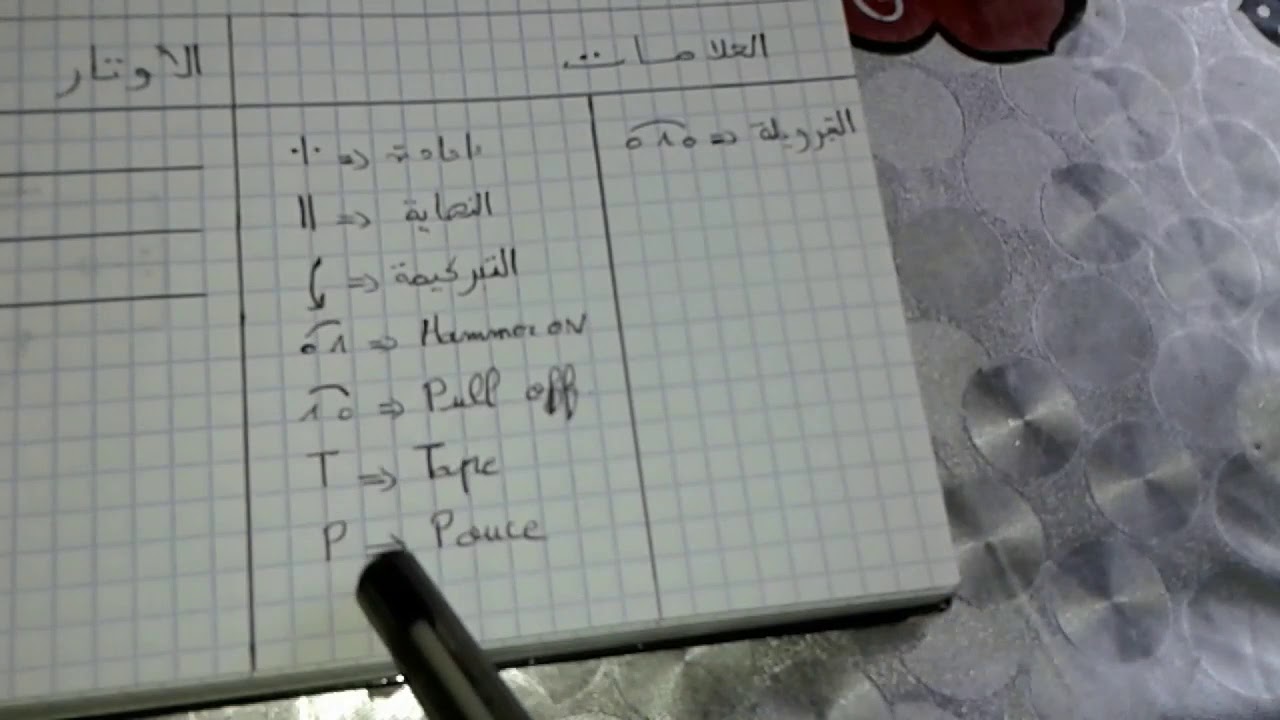 العلامات
الأوتار
التبرويلة ⇐ 010
إعادة ⇐ ·/·
النهاية ⇐ ||
التبركيمة ⇐
01 ⇒ Hammer ON
10 ⇒ Pull off
T ⇒ Tape
P ⇒ Pouce